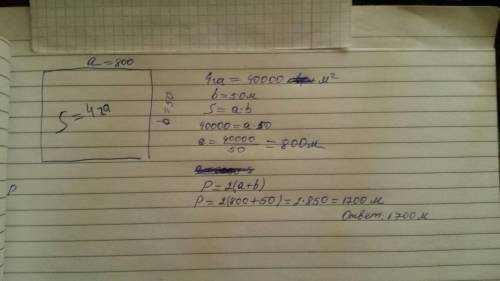 a = 800
S = 4га
b = 50
4га = 40000 м²
b = 50м
S = a·b
40000 = a·50
a = 40000/50 = 800м
P = 2(a+b)
P = 2(800+50) = 2·850 = 1700 м
Ответ: 1700 м
р